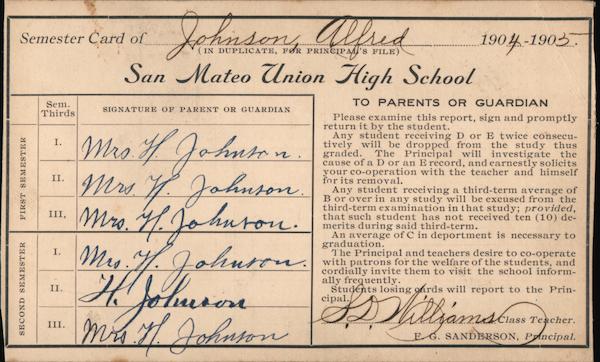 Semester Card of Johnson, Alfred 1904-1905.
(IN DUPLICATE, FOR PRINCIPAL'S FILE)
San Mateo Union High School
Sem. Thirds
SIGNATURE OF PARENT OR GUARDIAN
FIRST SEMESTER
I. Mrs. H. Johnson.
II. Mrs H. Johnson.
III. Mrs. H. Johnson.
SECOND SEMESTER
I. Mrs. H. Johnson.
II. H. Johnson
III. Mrs H. Johnson
TO PARENTS OR GUARDIAN
Please examine this report, sign and promptly
return it by the student.
Any student receiving D or E twice consecu-
tively will be dropped from the study thus
graded. The Principal will investigate the
cause of a D or an E record, and earnestly solicits
your co-operation with the teacher and himself
for its removal.
Any student receiving a third-term average of
B or over in any study will be excused from the
third-term examination in that study; provided,
that such student has not received ten (10) de-
merits during said third-term.
An average of C in deportment is necessary to
graduation.
The Principal and teachers desire to co-operate
with patrons for the welfare of the students, and
cordially invite them to visit the school inform-
ally frequently.
Students losing cards will report to the Prin-
cipal.
S. D. Williams Class Teacher.
F. G. SANDERSON, Principal.